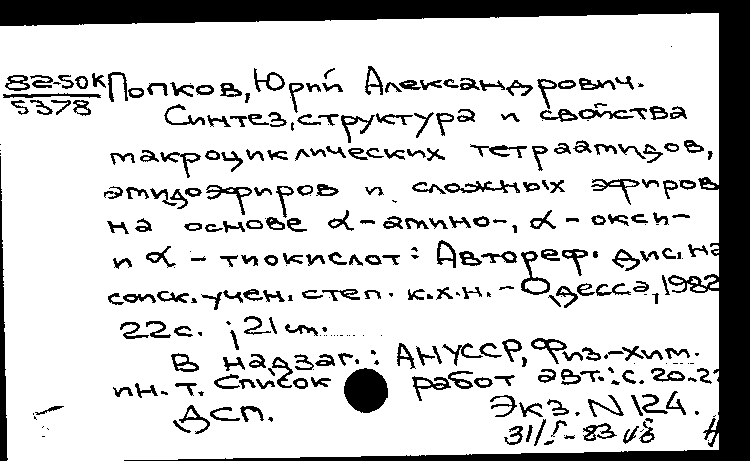 82-50к Попков, Юрий Александрович.
5378
Синтез, структура и свойства
макроциклических тетраамидов,
амидоэфиров и сложных эфиров
на основе α-амино-, α-окси-
и α-тиокислот: Автореф. дис. на
соиск. учен. степ. к.х.н. - Одесса, 1982
22с. ; 21 см.
В надзаг.: АНУССР, Физ.-хим.
ин. т. Список работ авт.: с. 20-2
ДСП. Экз. N 124.
31/I-83